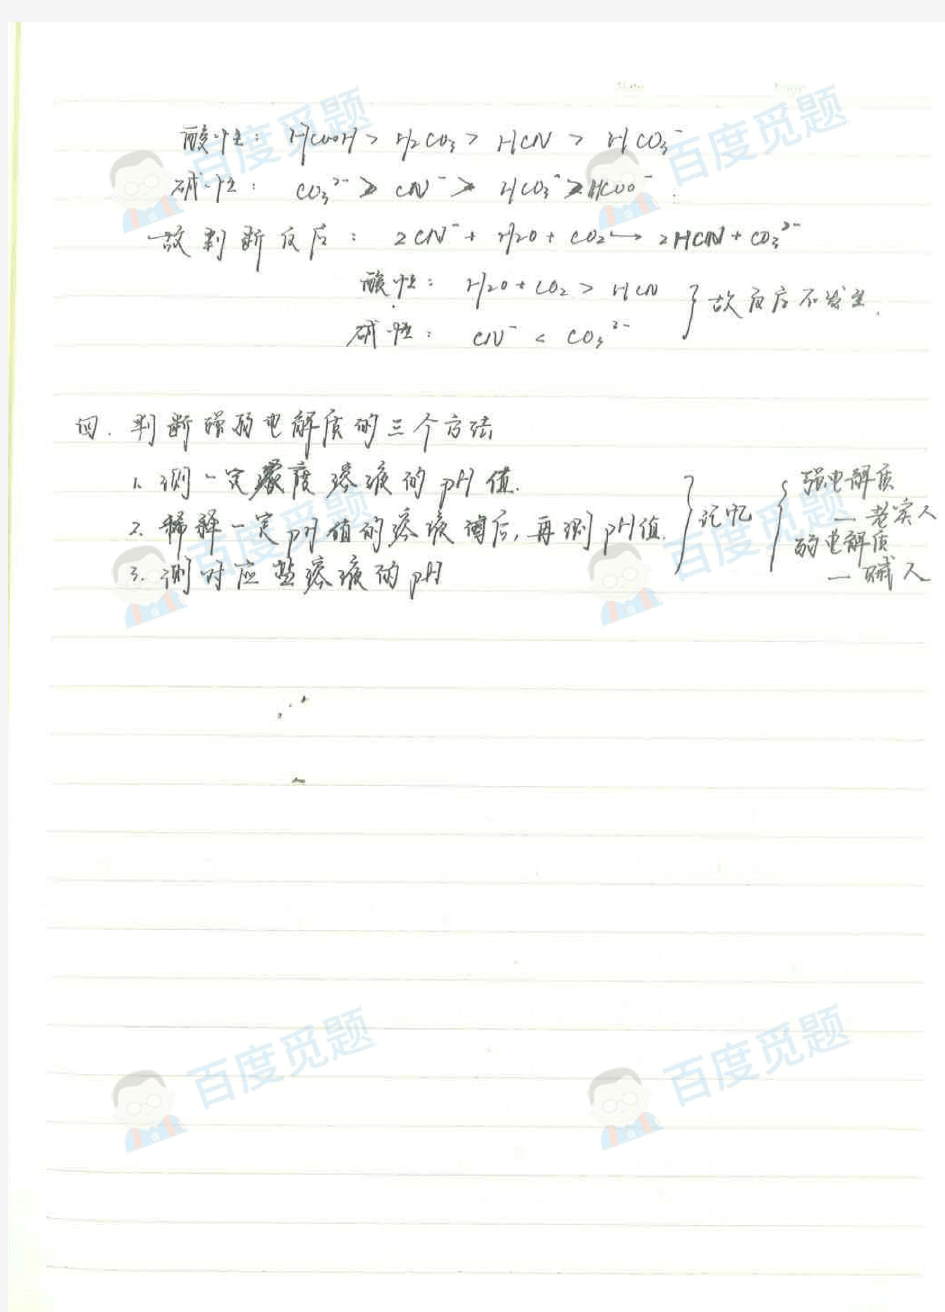 百度觅题
百度觅题
酸性: HCOOH > H₂CO₃ > HCN > HCO₃⁻
碱性: CO₃²⁻ > CN⁻ > HCO₃⁻ > HCOO⁻.
故判断反应: 2CN⁻ + H₂O + CO₂ → 2HCN + CO₃²⁻
酸性: H₂O + CO₂ > HCN
碱性: CN⁻ < CO₃²⁻
} 故反应不发生.
四. 判断强弱电解质的三个方法
1. 测一定浓度溶液的pH值.
2. 稀释一定pH值的溶液 后, 再测pH值.
3. 测对应盐溶液的pH
} 记忆 {
强电解质
— 老实人
弱电解质
— 贼人
百度觅题
百度觅题
百度觅题
百度觅题